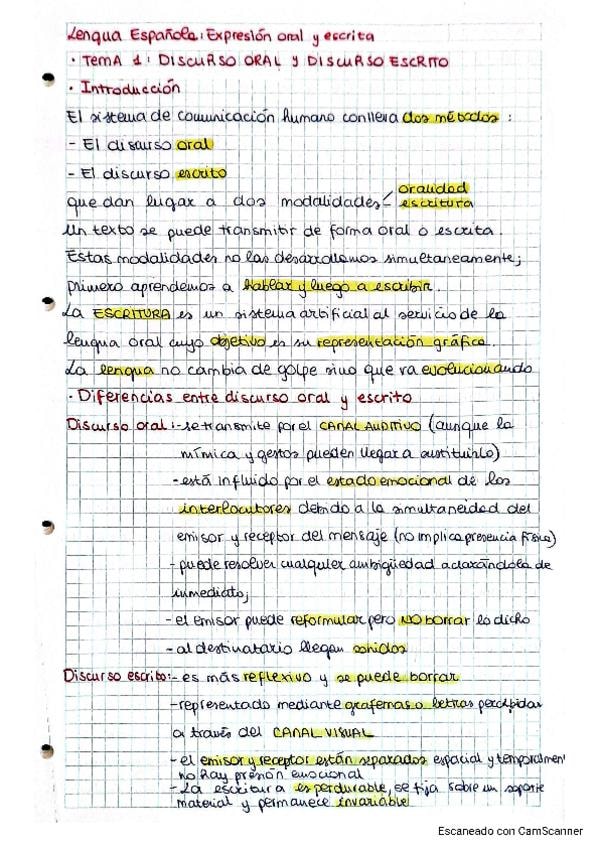 Lengua Española: Expresión oral y escrita
· TEMA 1: DISCURSO ORAL Y DISCURSO ESCRITO
· Introducción
El sistema de comunicación humano conlleva dos métodos :
- El discurso oral
- El discurso escrito
que dan lugar a dos modalidades < oralidad
escritura
Un texto se puede transmitir de forma oral o escrita.
Estas modalidades no las desarrollamos simultaneamente;
primero aprendemos a hablar y luego a escribir.
La ESCRITURA es un sistema artificial al servicio de la
lengua oral cuyo objetivo es su representación gráfica.
La lengua no cambia de golpe sino que va evolucionando
· Diferencias entre discurso oral y escrito
Discurso oral:- se transmite por el CANAL AUDITIVO (aunque la
mímica y gestos pueden llegar a sustituirlo)
- está influido por el estado emocional de los
interlocutores debido a la simultaneidad del
emisor y receptor del mensaje (no implica presencia física)
- puede resolver cualquier ambigüedad aclarándola de
inmediato;
- el emisor puede reformular pero NO borrar lo dicho
- al destinatario llegan sonidos
Discurso escrito:- es más reflexivo y se puede borrar
- representado mediante grafemas o letras percibidas
a través del CANAL VISUAL
- el emisor y receptor están separados espacial y temporalmen
no hay presión emocional
- La escritura es perdurable, se fija sobre un soporte
material y permanece invariable
Escaneado con CamScanner